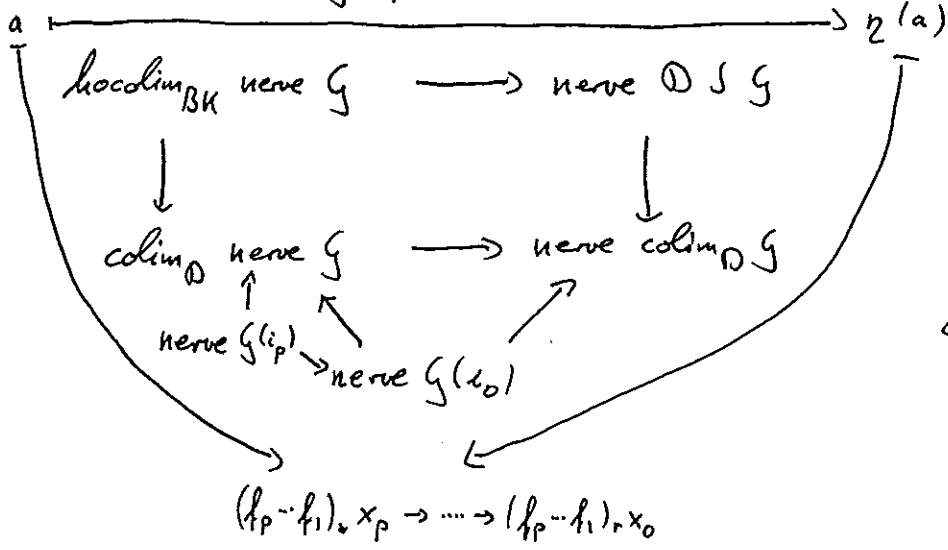 a ⟼ η(a)
hocolim_BK nerve G ⟶ nerve D ∫ G
colim_D nerve G ⟶ nerve colim_D G
nerve G(i_p) → nerve G(i_0)
(f_p ⋯ f_1)_* x_p → ⋯ → (f_p ⋯ f_1)_* x_0